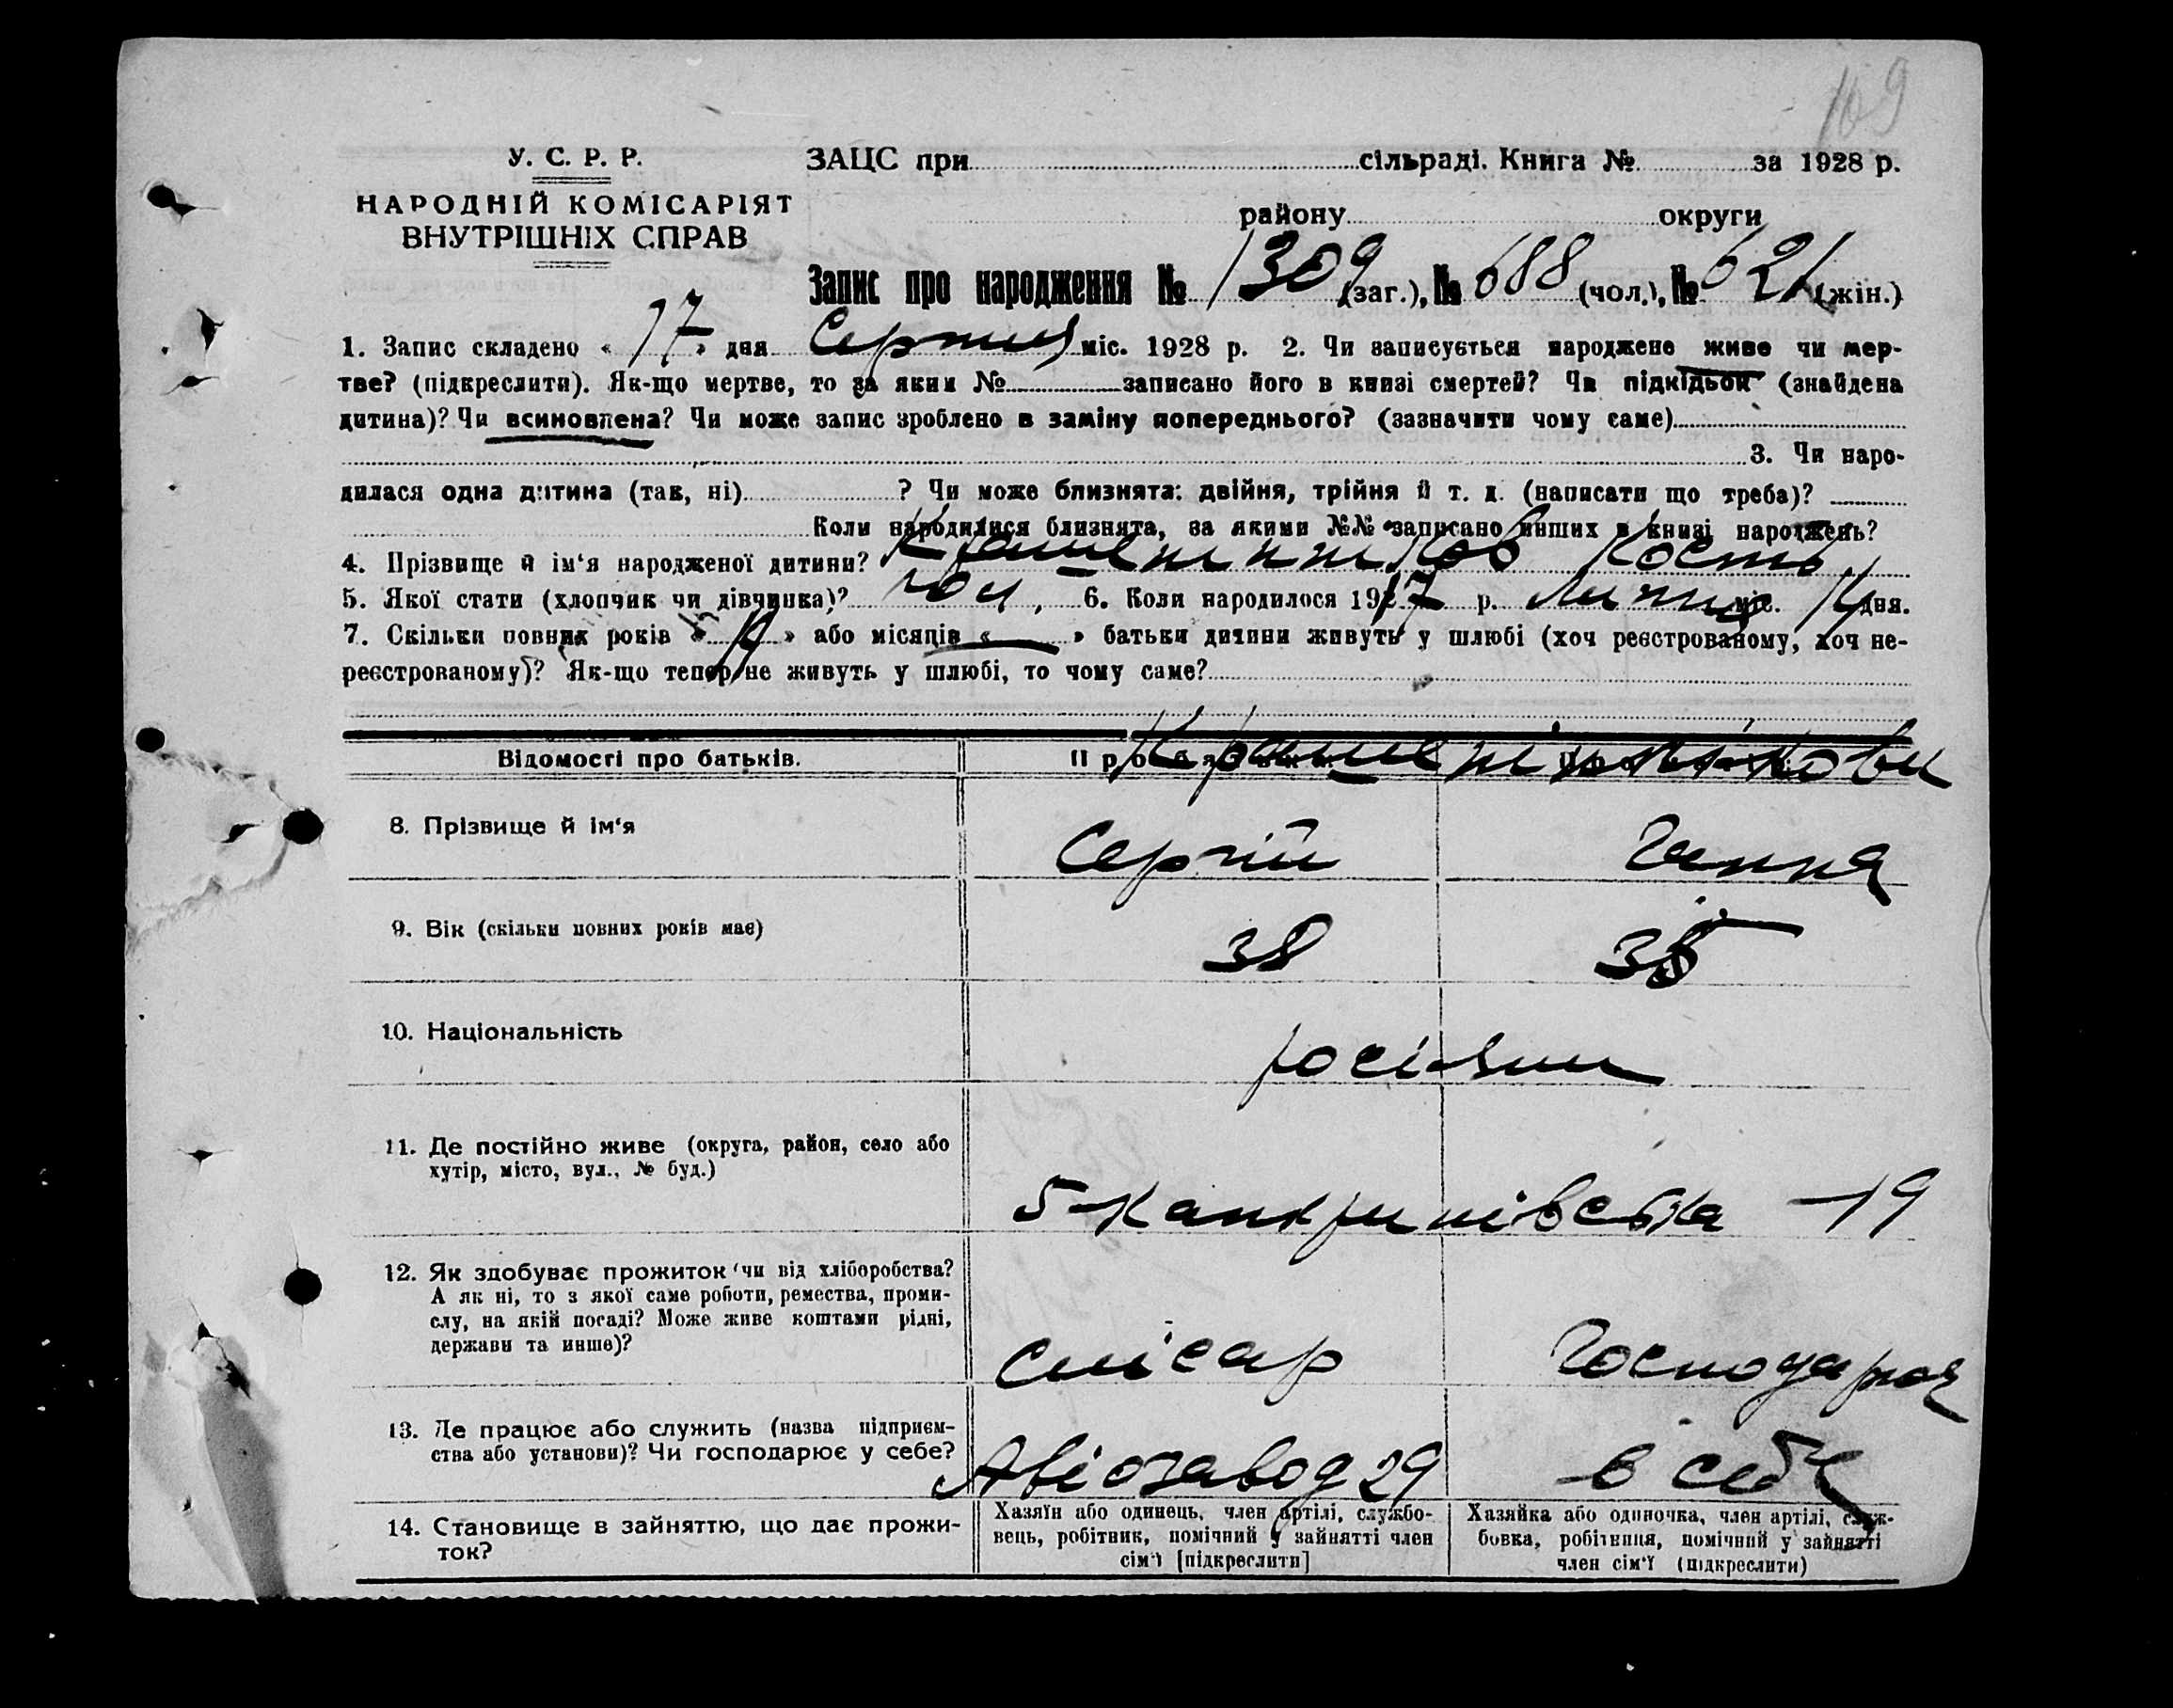 169
У. С. Р. Р.
НАРОДНІЙ КОМІСАРІЯТ
ВНУТРІШНІХ СПРАВ
ЗАЦС при сільраді. Книга № за 1928 р.
району округи
Запис про народження № 1309 (заг.), № 688 (чол.), № 621 (жін.)
1. Запис складено « 17 » дня Серпня міс. 1928 р. 2. Чи записується народжене живе чи мер-
тве? (підкреслити). Як-що мертве, то за яким № записано його в книзі смертей? Чи підкідьок (знайдена
дитина)? Чи всиновлена? Чи може запис зроблено в заміну попереднього? (зазначити чому саме)
3. Чи наро-
дилася одна дитина (так, ні) ? Чи може близнята: двійня, трійня й т. д. (написати що треба)?
Коли народилися близнята, за якими №№ записано инших в книзі народжень?
4. Прізвище й ім'я народженої дитини? Крашенинніков Кость
5. Якої стати (хлопчик чи дівчинка)? чол, 6. Коли народилося 1917 р. Липня міс. 14 дня.
7. Скільки повних років » або місяців « » батьки дитини живуть у шлюбі (хоч реєстрованому, хоч не-
реєстрованому)? Як-що тепер не живуть у шлюбі, то чому саме?
Відомості про батьків.
Крашенінніковы
8. Прізвище й ім'я Сергій Ганна
9. Вік (скільки повних років має) 38 35
10. Національність росіяни
11. Де постійно живе (округа, район, село або
хутір, місто, вул., № буд.)
5-Канкринівська - 19
12. Як здобуває прожиток (чи від хліборобства?
А як ні, то з якої саме роботи, ремества, проми-
слу, на якій посаді? Може живе коштами рідні,
держави та инше)?
слісар Господарює
13. Де працює або служить (назва підприєм-
ства або установи)? Чи господарює у себе?
Авіозавод 29 в себе
14. Становище в зайняттю, що дає прожи-
ток?
Хазяїн або одинець, член артілі, службо-
вець, робітник, помічний у зайнятті член
сім'ї [підкреслити]
Хазяйка або одиночка, член артілі, служ-
бовка, робітниця, помічний у зайнятті
член сім'ї (підкреслити)